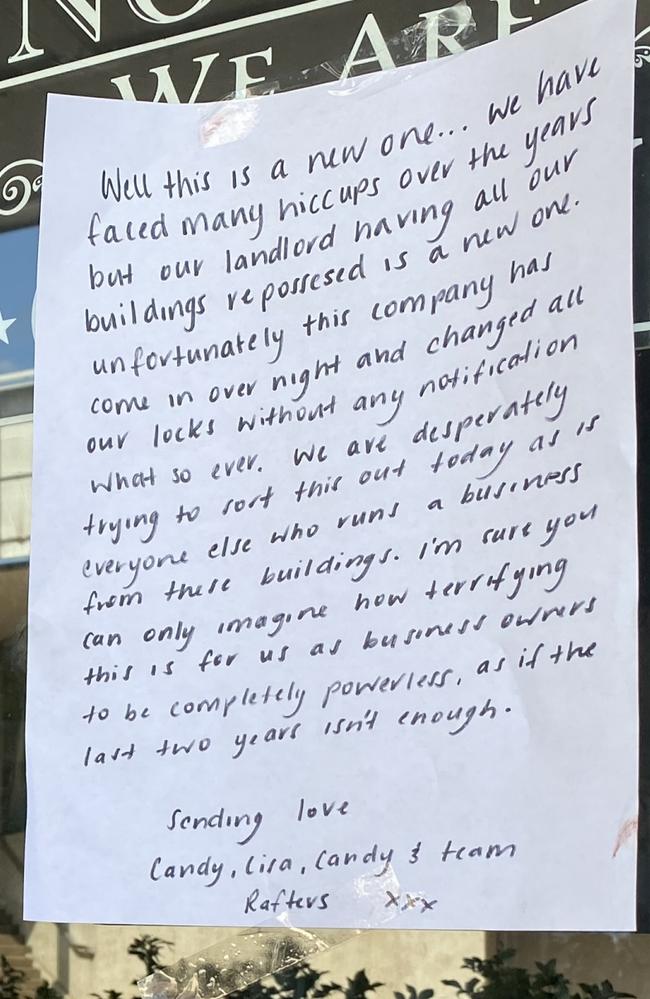 NO
WE ARE
Well this is a new one... we have
faced many hiccups over the years
but our landlord having all our
buildings repossesed is a new one.
unfortunately this company has
come in over night and changed all
our locks without any notification
what so ever. We are desperately
trying to sort this out today as is
everyone else who runs a business
from these buildings. I'm sure you
can only imagine how terrifying
this is for us as business owners
to be completely powerless, as if the
last two years isn't enough.
Sending love
Candy, Lisa, Candy & team
Rafters xxx